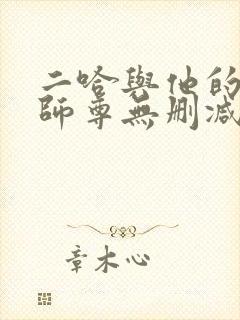 二哈與他的
師尊無刪減
章木心